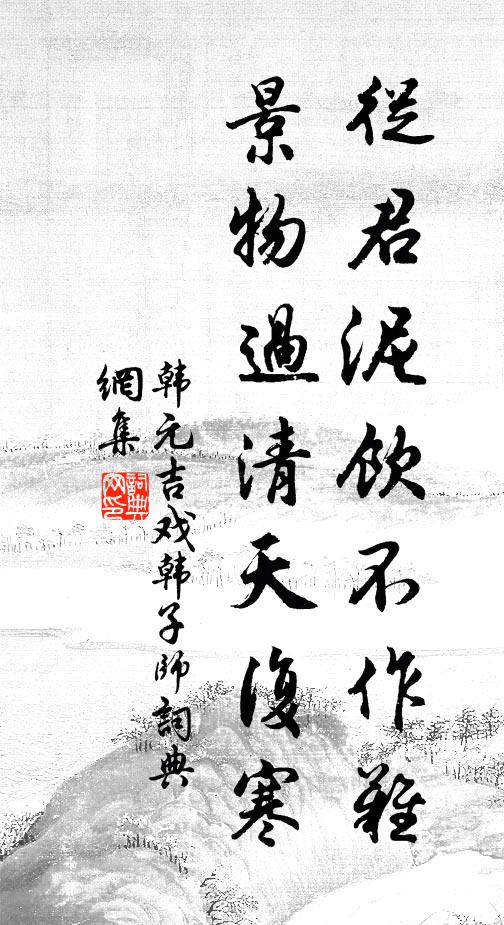 從君泥飲不作難
景物過清天復寒
韩元吉戏韩子师詞典
網集
詞典
网印